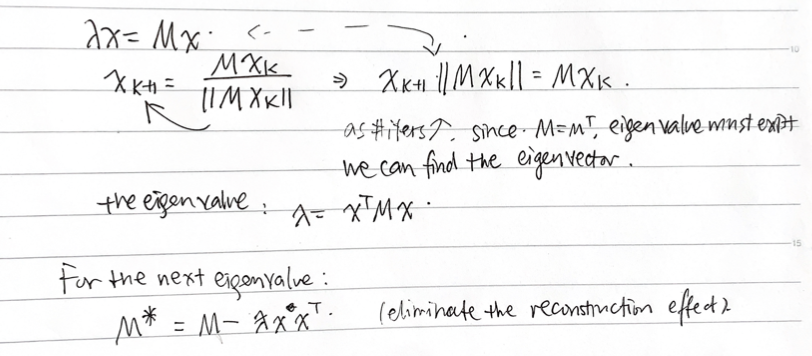 λx = Mx.
x_{k+1} = Mx_k / ||Mx_k|| ⇒ x_{k+1} ||Mx_k|| = Mx_k.
as #iters↑, since M=M^T, eigenvalue must exist
we can find the eigenvector.
the eigenvalue: λ = x^T M x.
For the next eigenvalue:
M* = M - λ x x^T. (eliminate the reconstruction effect)
10
15